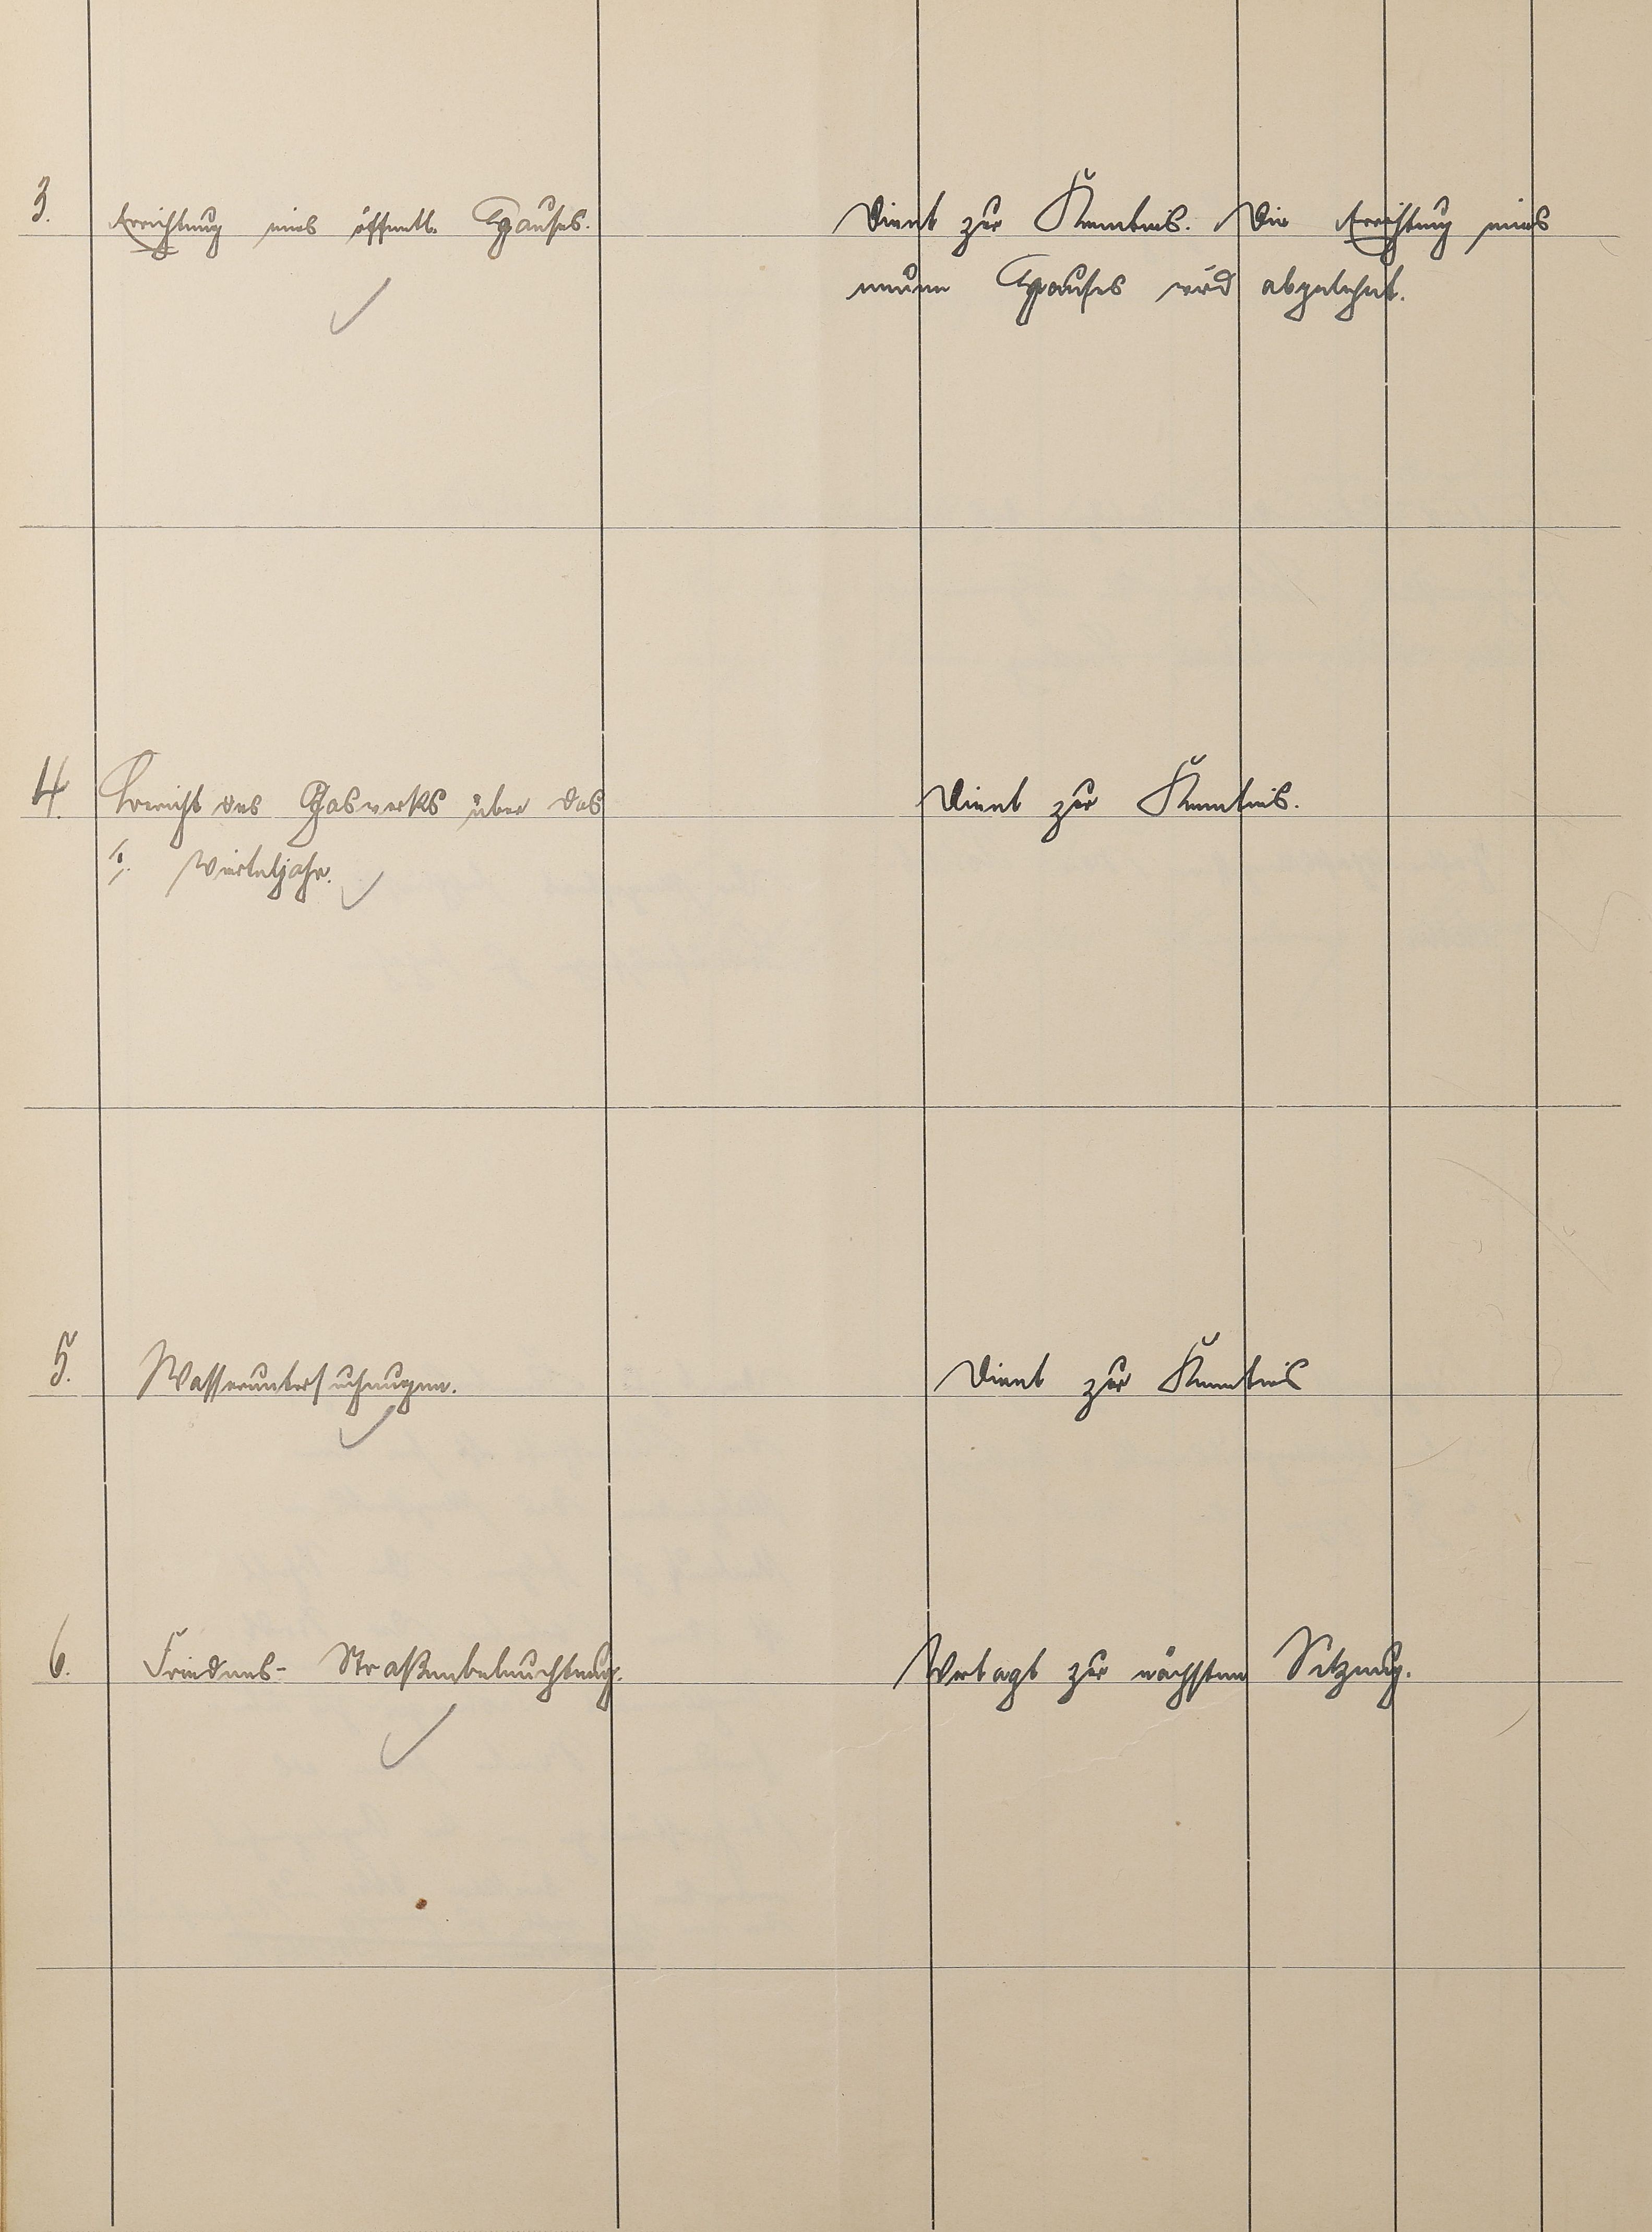 3. Errichtung eines öffentl. Hauses.
Dient zur Kenntnis. Die Errichtung eines
neuen Hauses wird abgelehnt.
4. Bericht des Gaswerks über das
I. Vierteljahr.
Dient zur Kenntnis.
5. Wasseruntersuchungen.
Dient zur Kenntnis
6. Friedens- Straßenbeleuchtung.
Vertagt zur nächsten Sitzung.